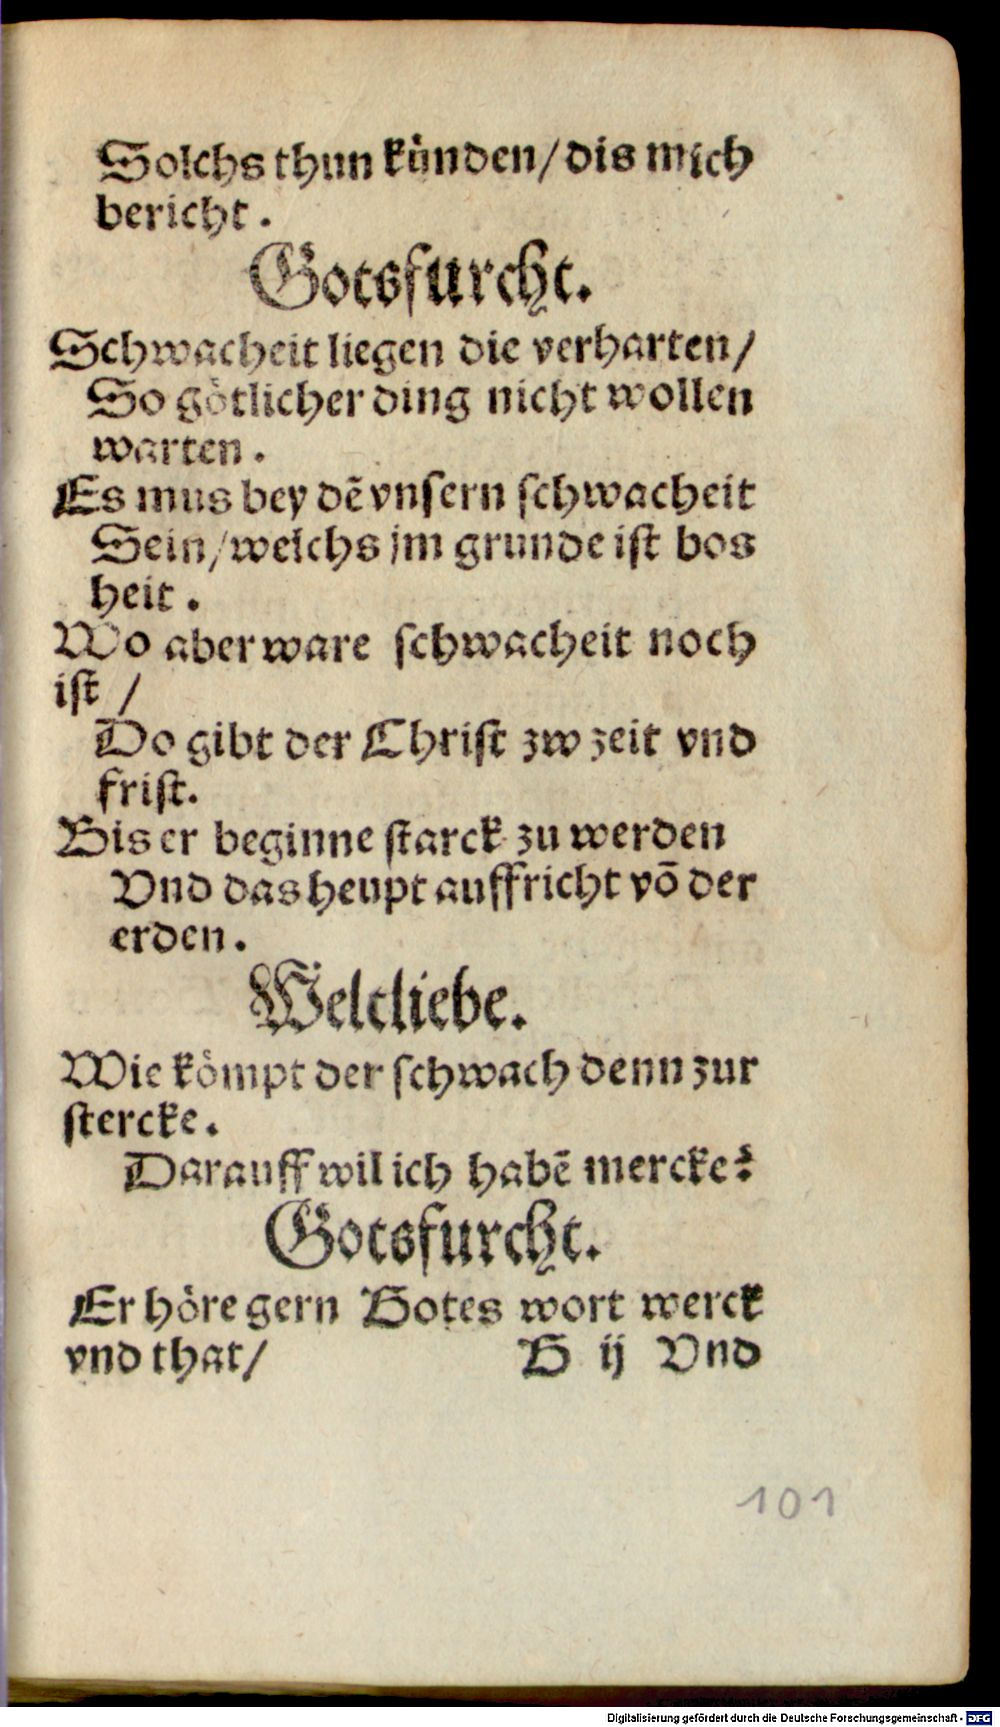 Solchs thun kuͤnden/dis mich
bericht.
Gotsfurcht.
Schwacheit liegen die verharten/
So goͤtlicher ding nicht wollen
warten.
Es mus bey dẽ vnſern ſchwacheit
Sein/welchs jm grunde iſt bos
heit.
Wo aber ware ſchwacheit noch
iſt /
Do gibt der Chriſt zw zeit vnd
friſt.
Bis er beginne ſtarck zu werden
Vnd das heupt auffricht võ der
erden.
Weltliebe.
Wie koͤmpt der ſchwach denn zur
ſtercke.
Darauff wil ich habẽ mercke?
Gotsfurcht.
Er hoͤre gern Gotes wort werck
vnd that/ B ij Vnd
101
Digitalisierung gefördert durch die Deutsche Forschungsgemeinschaft - DFG